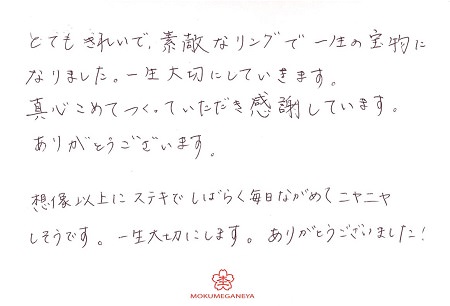 とてもきれいで、素敵なリングで一生の宝物に
なりました。一生大切にしていきます。
真心こめてつくっていただき感謝しています。
ありがとうございます。
想像以上にステキでしばらく毎日ながめてニヤニヤ
しそうです。一生大切にします。ありがとうございました!
MOKUMEGANEYA